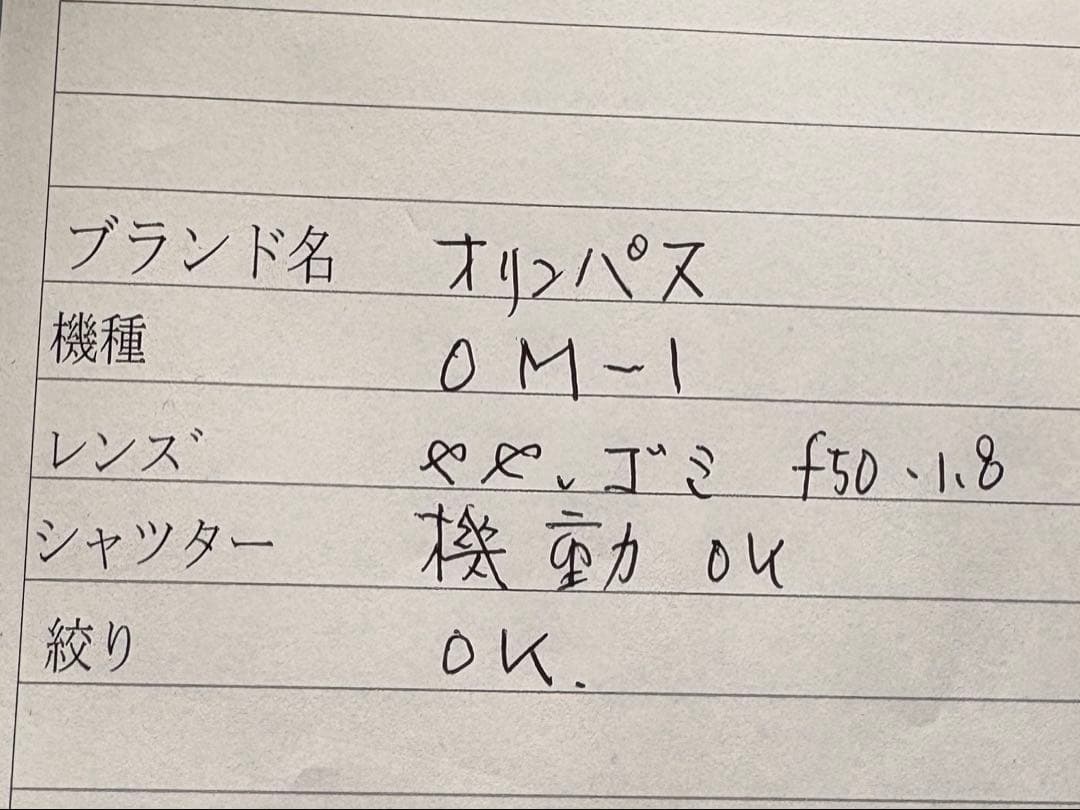 ブランド名 オリンパス
機種 OM-1
レンズ やや、ゴミ f50、1.8
シャツター 機動 OK
絞り OK.